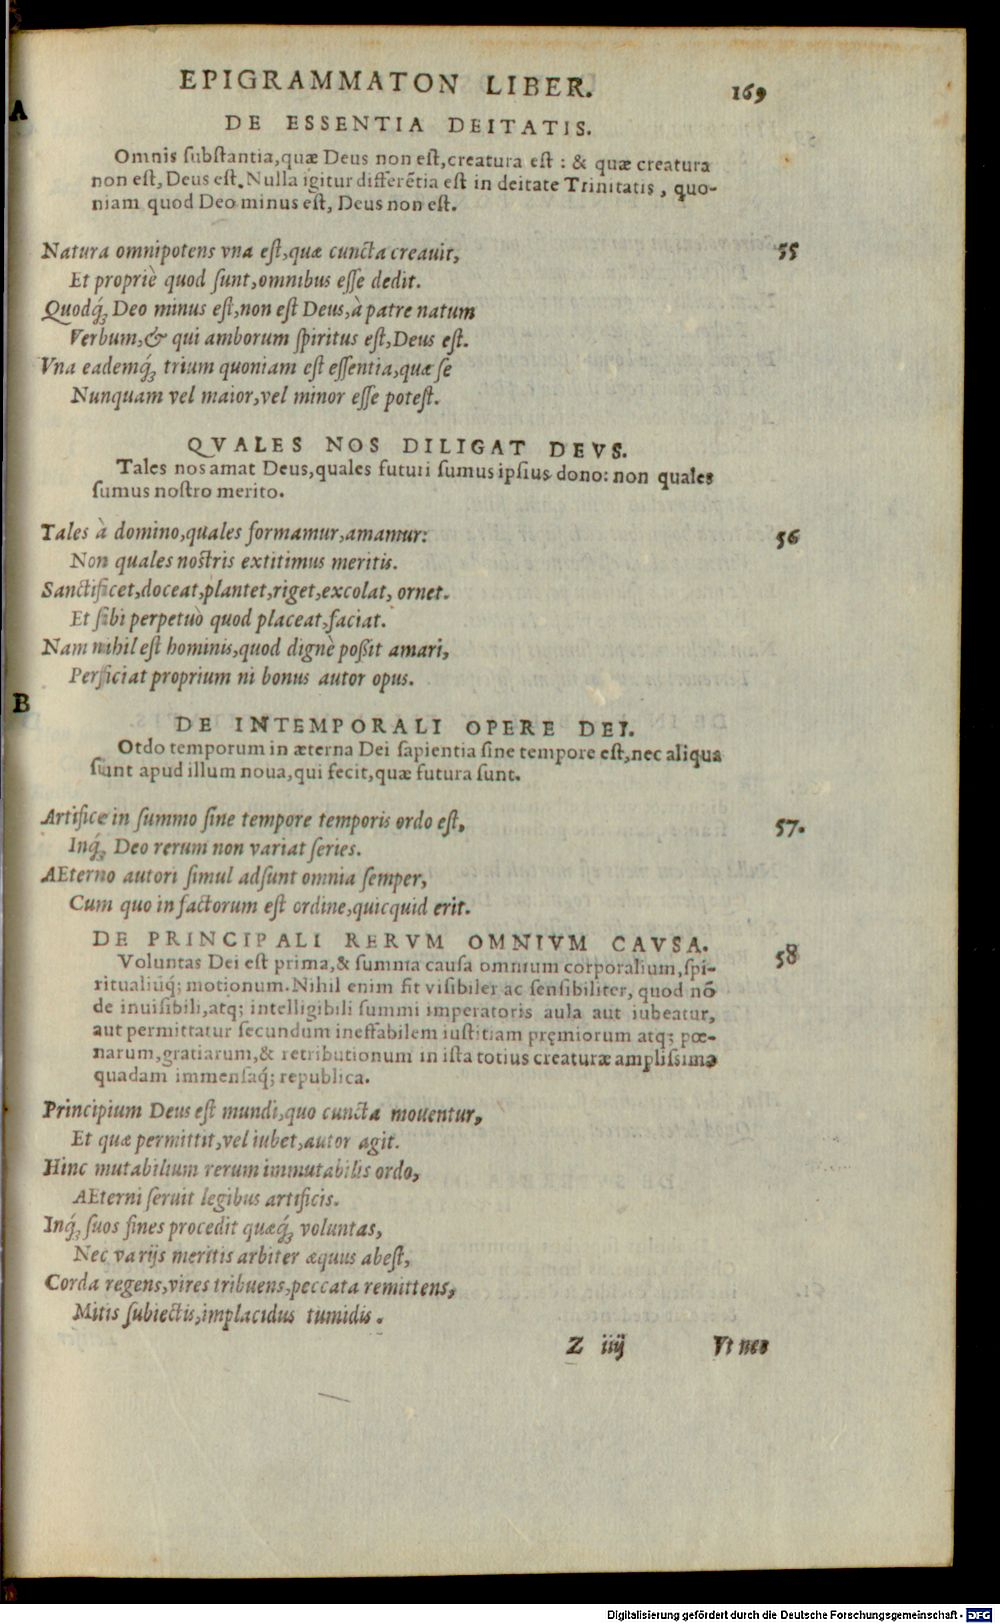 EPIGRAMMATON LIBER. 169
A
DE ESSENTIA DEITATIS.
Omnis substantia,quæ Deus non est,creatura est : & quæ creatura
non est, Deus est. Nulla igitur differẽtia est in deitate Trinitatis , quo-
niam quod Deo minus est, Deus non est.
Natura omnipotens vna est,quæ cuncta creauit, 55
Et propriè quod sunt,omnibus esse dedit.
Quodq́; Deo minus est,non est Deus,à patre natum
Verbum,& qui amborum spiritus est,Deus est.
Vna eademq́; trium quoniam est essentia,quæ se
Nunquam vel maior,vel minor esse potest.
QVALES NOS DILIGAT DEVS.
Tales nos amat Deus,quales futuri sumus ipsius dono: non quales
sumus nostro merito.
Tales à domino,quales formamur,amamur: 56
Non quales nostris extitimus meritis.
Sanctificet,doceat,plantet,riget,excolat, ornet.
Et sibi perpetuò quod placeat,faciat.
Nam nihil est hominis,quod dignè poßit amari,
Perficiat proprium ni bonus autor opus.
B
DE INTEMPORALI OPERE DEI.
Otdo temporum in æterna Dei sapientia sine tempore est,nec aliqua
sunt apud illum noua,qui fecit,quæ futura sunt.
Artifice in summo sine tempore temporis ordo est, 57.
Inq́; Deo rerum non variat series.
AEterno autori simul adsunt omnia semper,
Cum quo in factorum est ordine,quicquid erit.
DE PRINCIPALI RERVM OMNIVM CAVSA.
Voluntas Dei est prima,& summa causa omnium corporalium,spi- 58
ritualiũq́; motionum. Nihil enim fit visibiler ac sensibiliter, quod nõ
de inuisibili,atq; intelligibili summi imperatoris aula aut iubeatur,
aut permittatur secundum ineffabilem iustitiam pręmiorum atq; pœ-
narum,gratiarum,& retributionum in ista totius creaturæ amplissima
quadam immensaq́; republica.
Principium Deus est mundi,quo cuncta mouentur,
Et quæ permittit,vel iubet,autor agit.
Hinc mutabilium rerum immutabilis ordo,
AEterni seruit legibus artificis.
Inq́; suos fines procedit quæq́; voluntas,
Nec varijs meritis arbiter æquus abest,
Corda regens,vires tribuens,peccata remittens,
Mitis subiectis,implacidus tumidis.
Z iiij Vt nec
Digitalisierung gefördert durch die Deutsche Forschungsgemeinschaft - DFG